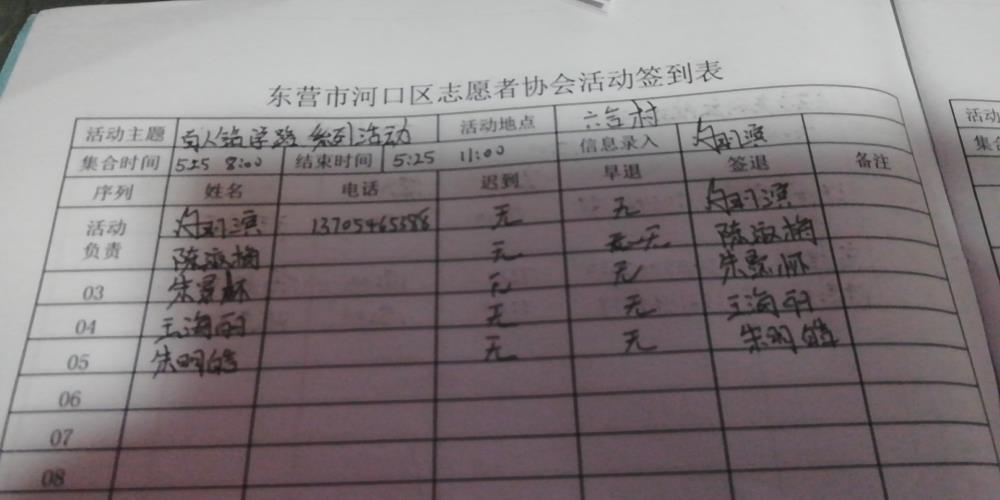 东营市河口区志愿者协会活动签到表
活动主题 百人 学路 系列活动 活动地点 六合村
集合时间 5.25 8:00 结束时间 5:25 11:00 信息录入
序列 姓名 电话 迟到 早退 签退 备注
活动负责 13705465586 无 无
陈淑梅 无 无 陈淑梅
03 朱 无 无 朱
04 王海丽 无 无 王海丽
05 朱明皓 无 无 朱明皓
06
07
08
活动
集合